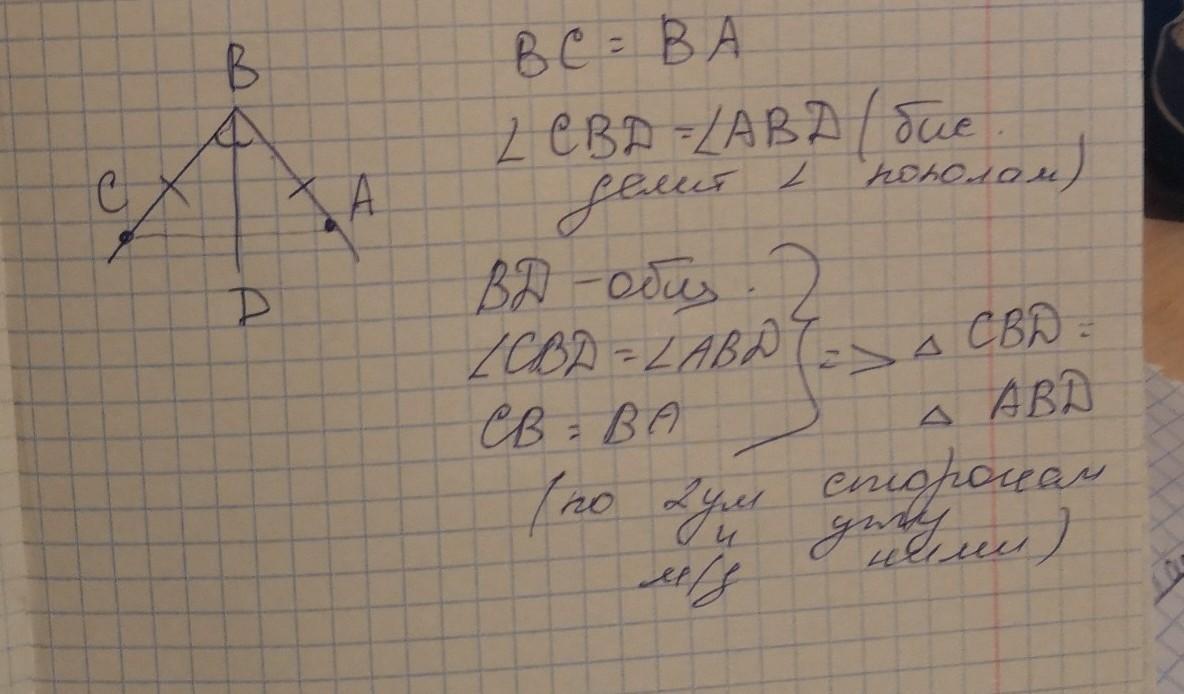 B
C
A
D
BC = BA
∠CBD = ∠ABD (бис.
делит ∠ пополам)
BD - общ.
∠CBD = ∠ABD
CB = BA
=> △ CBD =
△ ABD
(по 2ум сторонам
и углу
м/д ними)